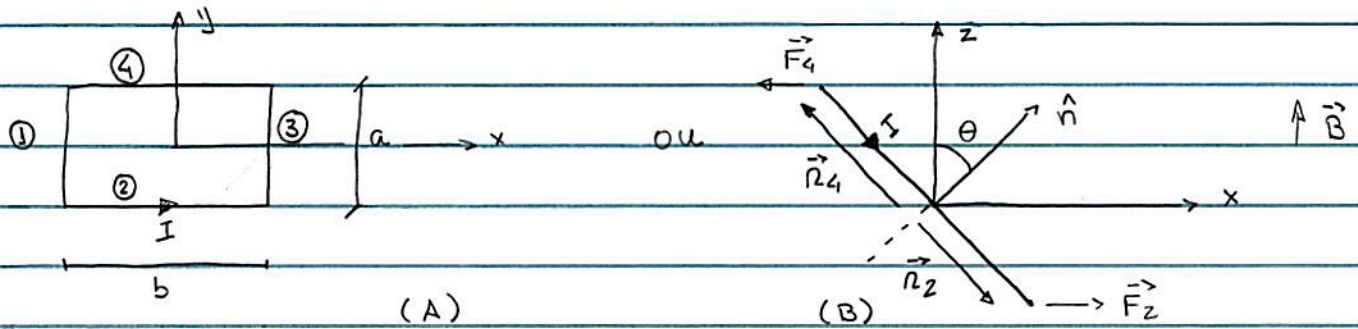 y
④
① ③ a x
②
I
b
(A)
ou
z
F⃗₄
I θ n̂ B⃗
r⃗₄
x
r⃗₂
F⃗₂
(B)